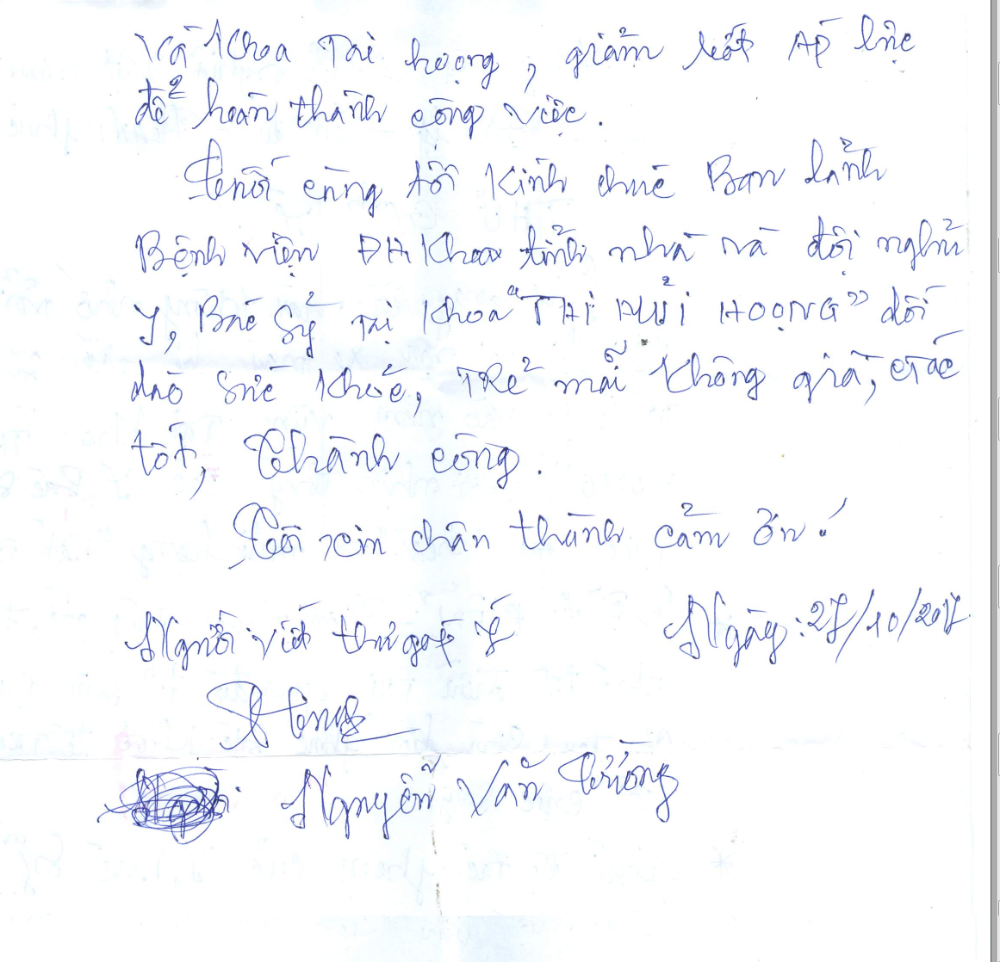 Và Khoa Tai họọng, giảm bớt Áp lực
để hoàn thành công việc.
Cuối cùng tôi Kính chúc Ban lảnh
Bệnh viện ĐA Khoa tỉnh nhà và đội nghũ
y, Bác Sỷ Tại Khoa "TAI MŨI HOỌNG" dồi
dào sức khoẻ, TRẺ mãi không già,
tốt, Thành công.
Tôi xin chân thành cảm ơn!
Người viết thư góp ý
Ngày: 27/10/2017
Nguyễn Văn Tường